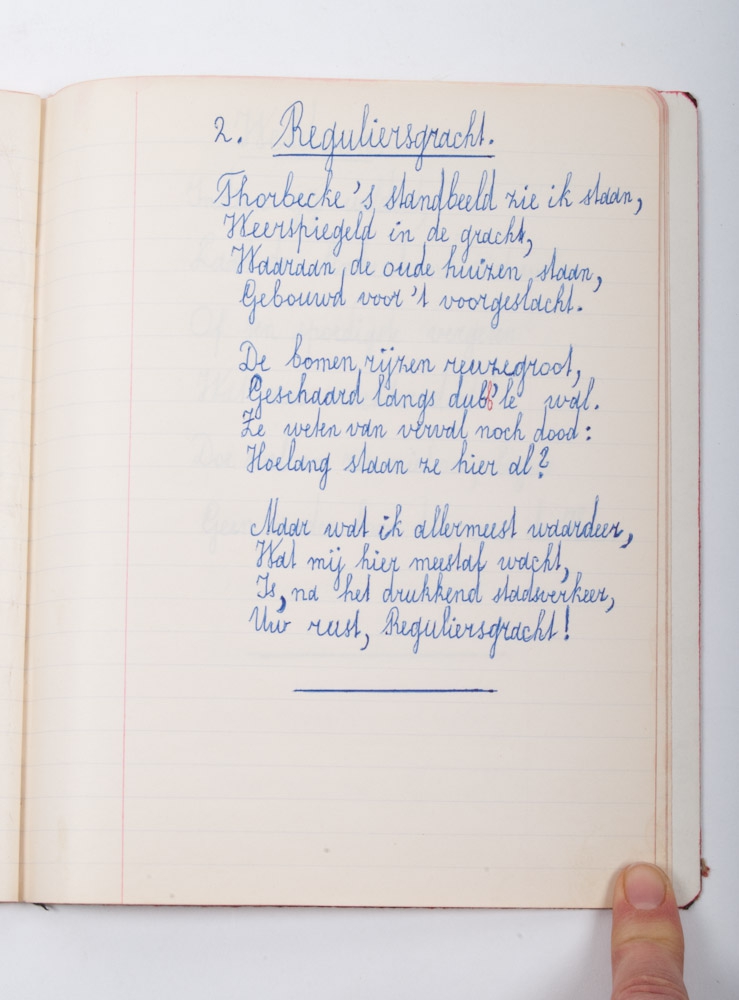 2. Reguliersgracht.
Thorbecke's standbeeld zie ik staan,
Weerspiegeld in de gracht,
Waaraan de oude huizen staan,
Gebouwd voor 't voorgeslacht.
De bomen rijzen reuzegroot,
Geschaard langs dubb'le wal.
Ze weten van verval noch dood:
Hoelang staan ze hier al?
Maar wat ik allermeest waardeer,
Wat mij hier meestal wacht,
Is, na het drukkend stadsverkeer,
Uw rust, Reguliersgracht!